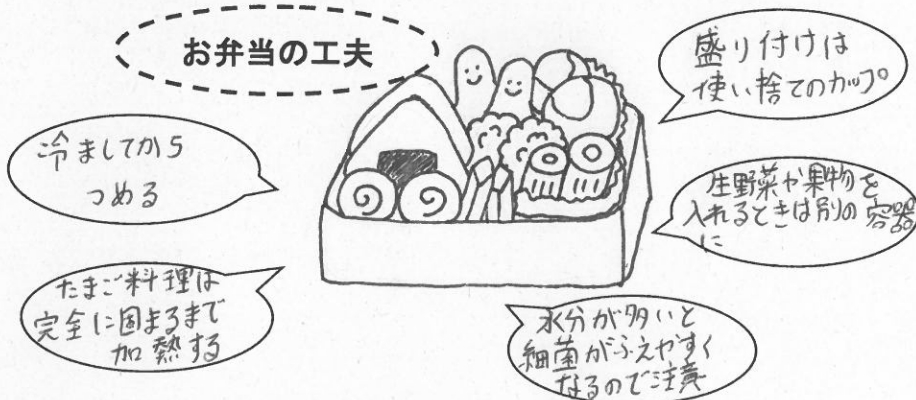 お弁当の工夫
盛り付けは
使い捨てのカップ
冷ましてから
つめる
生野菜や果物を
入れるときは別の容器
に
たまご料理は
完全に固まるまで
加熱する
水分が多いと
細菌がふえやすく
なるので注意